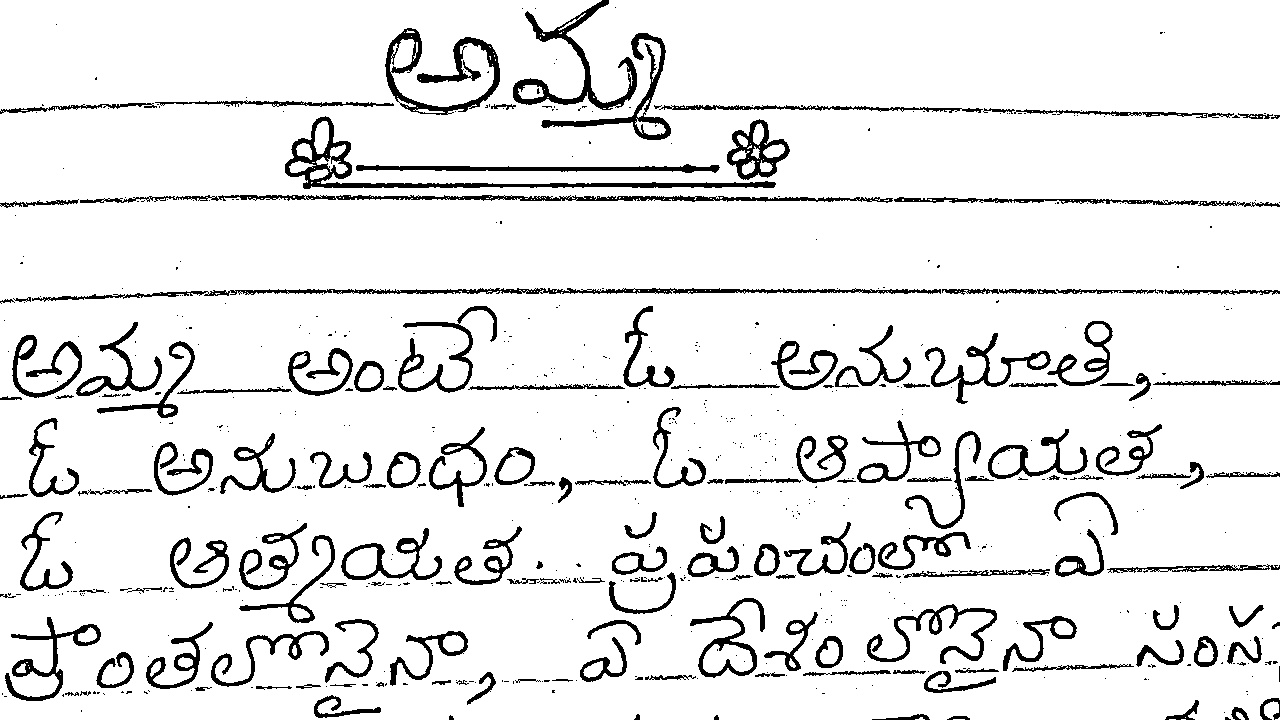 అమ్మ
అమ్మ అంటే ఓ అనుభూతి,
ఓ అనుబంధం, ఓ ఆప్యాయత,
ఓ ఆత్మీయత. ప్రపంచంలో ఏ
ప్రాంతంలోనైనా, ఏ దేశంలోనైనా